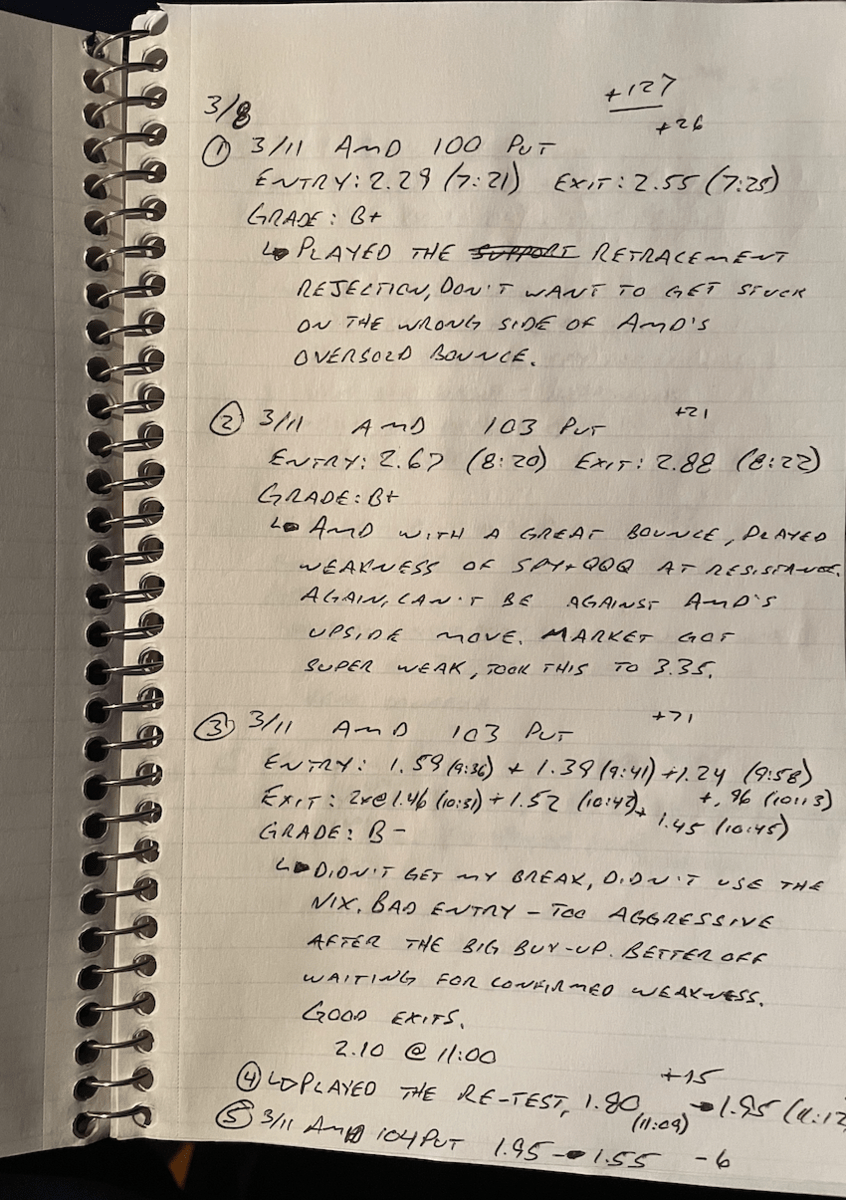 +127
3/8
+26
① 3/11 AMD 100 PUT
ENTRY: 2.29 (7:21) EXIT: 2.55 (7:25)
GRADE: B+
↳ PLAYED THE SUPPORT RETRACEMENT
REJECTION, DON'T WANT TO GET STUCK
ON THE WRONG SIDE OF AMD'S
OVERSOLD BOUNCE.
② 3/11 AMD 103 PUT +21
ENTRY: 2.67 (8:20) EXIT: 2.88 (8:22)
GRADE: B+
↳ AMD WITH A GREAT BOUNCE, PLAYED
WEAKNESS OF SPY+QQQ AT RESISTANCE.
AGAIN, CAN'T BE AGAINST AMD'S
UPSIDE MOVE. MARKET GOT
SUPER WEAK, TOOK THIS TO 3.35.
③ 3/11 AMD 103 PUT +71
ENTRY: 1.59 (9:36) + 1.39 (9:41) + 1.24 (9:58)
+ .96 (10:13)
EXIT: 2x@1.46 (10:31) + 1.52 (10:42) +
1.45 (10:45)
GRADE: B-
↳ DIDN'T GET MY BREAK, DIDN'T USE THE
NIX. BAD ENTRY - TOO AGGRESSIVE
AFTER THE BIG BUY-UP. BETTER OFF
WAITING FOR CONFIRMED WEAKNESS.
GOOD EXITS.
2.10 @ 11:00
④ ↳ PLAYED THE RE-TEST, 1.80 (11:09) → 1.95 (11:12 +15
⑤ 3/11 AMD 104 PUT 1.95 → 1.55 -6